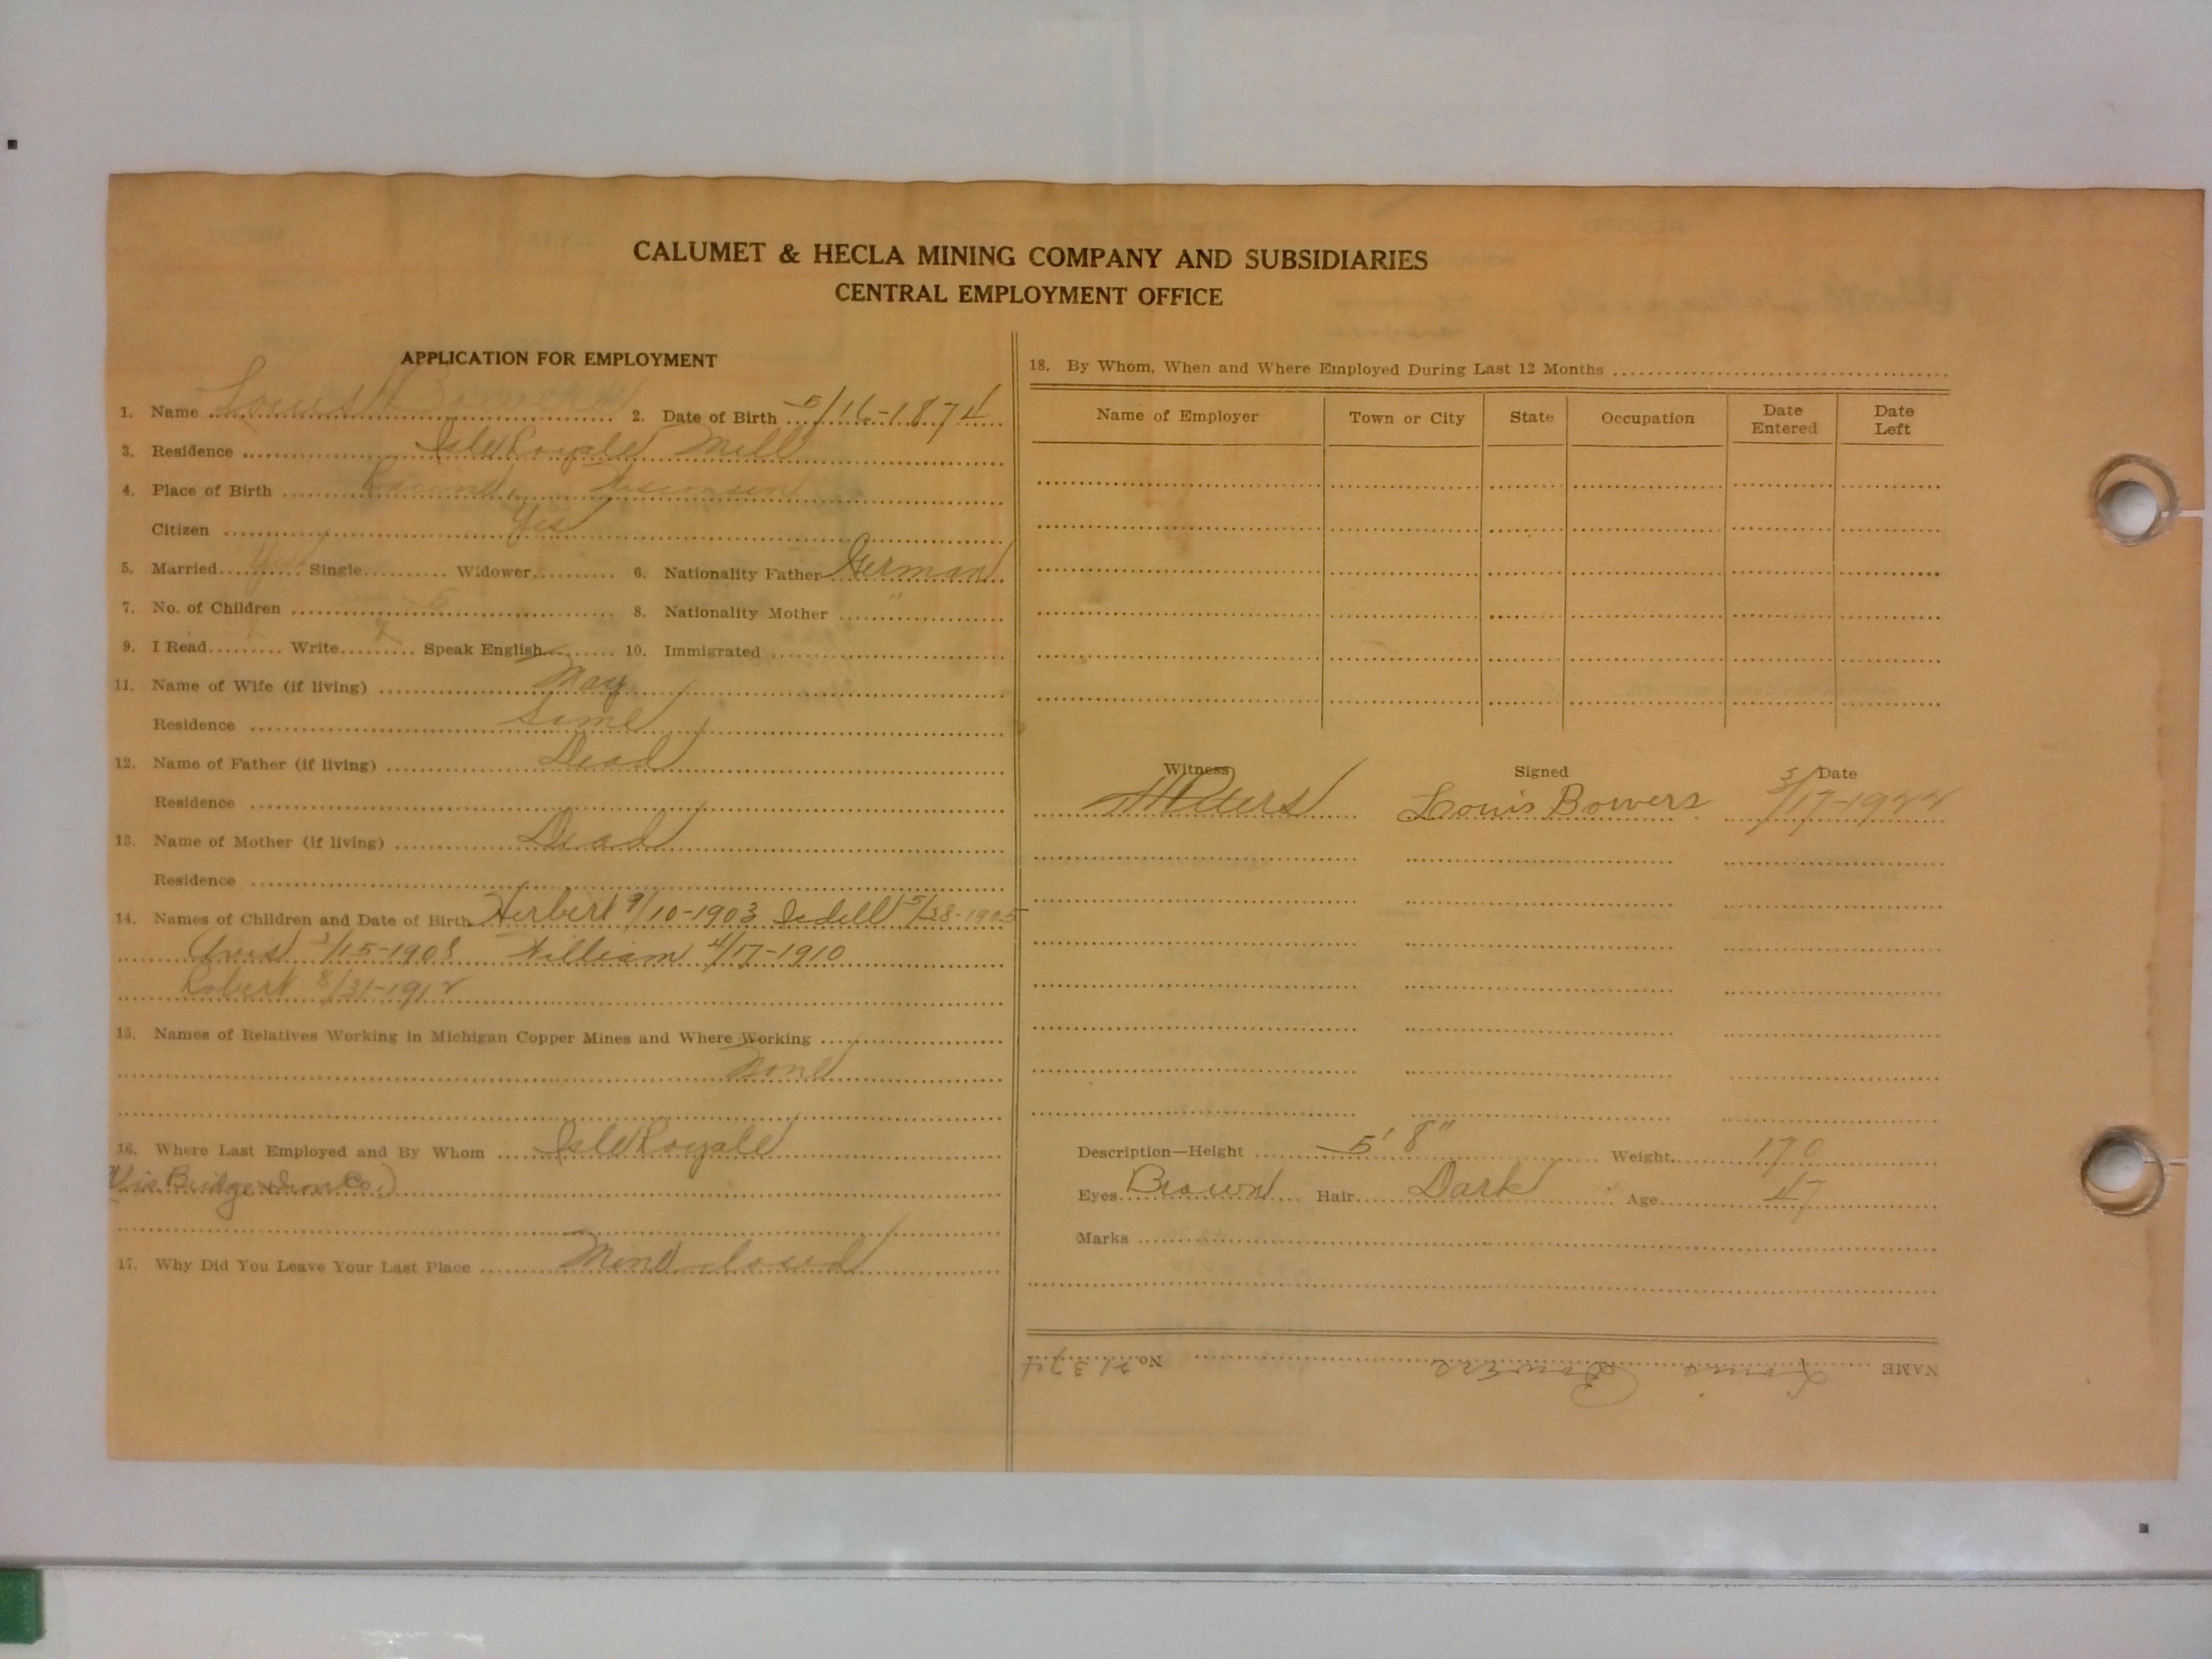 CALUMET & HECLA MINING COMPANY AND SUBSIDIARIES
CENTRAL EMPLOYMENT OFFICE
APPLICATION FOR EMPLOYMENT
1. Name Louis 2. Date of Birth 5/16-1874
3. Residence Isle Royale Mill
4. Place of Birth Racine, Wisconsin
Citizen Yes
5. Married Yes Single Widower 6. Nationality Father German
7. No. of Children 5 8. Nationality Mother "
9. I Read Write Speak English 10. Immigrated
11. Name of Wife (if living) May
Residence Same
12. Name of Father (if living) Dead
Residence
13. Name of Mother (if living) Dead
Residence
14. Names of Children and Date of Birth Herbert 9/10-1903 5/28-1905
/15-1908 William 4/17-1910
Robert 8/31-1912
15. Names of Relatives Working in Michigan Copper Mines and Where Working
None
16. Where Last Employed and By Whom Isle Royale
Bridge & Iron Co.)
17. Why Did You Leave Your Last Place Mine closed
18. By Whom, When and Where Employed During Last 12 Months
Name of Employer Town or City State Occupation Date Entered Date Left
Witness Signed Date
Peters Louis Bowers 3/17-1922
Description—Height 5' 8" Weight 170
Eyes Brown Hair Dark Age 47
Marks
NAME Louis Bowers No. 21374